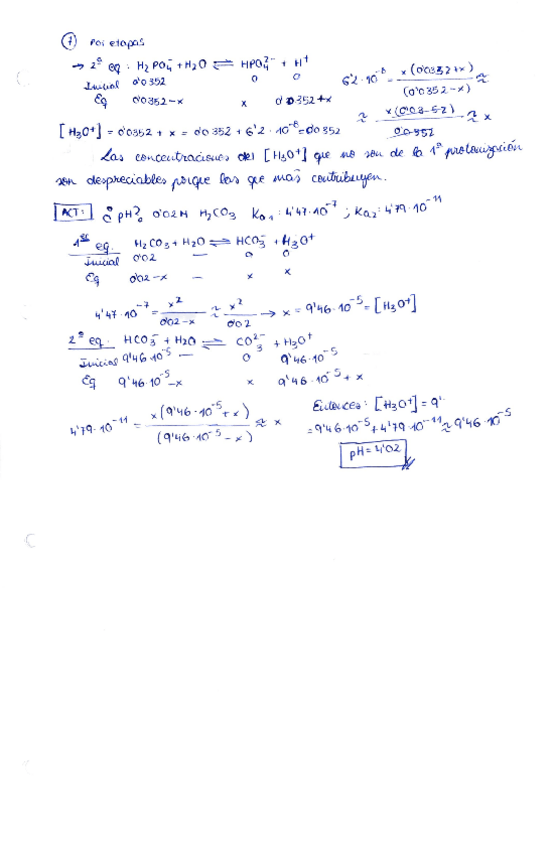 ⑦ Por etapas
→ 2ª eq: H₂PO₄⁻ + H₂O ⇌ HPO₄²⁻ + H⁺
Inicial 0'0352 0 0
Eq 0'0352-x x 0'0352+x
6'2·10⁻⁸ = x(0'0352+x) / (0'0352-x) ≈
≈ x(0'0352) / 0'0352 ≈ x
[H₃O⁺] = 0'0352 + x = 0'0352 + 6'2·10⁻⁸ = 0'0352
Las concentraciones del [H₃O⁺] que no son de la 1ª protonización
son despreciables porque las que más contribuyen.
ACT: ¿pH? 0'02M H₂CO₃ Ka₁: 4'47·10⁻⁷ ; Ka₂: 4'79·10⁻¹¹
1ª eq. H₂CO₃ + H₂O ⇌ HCO₃⁻ + H₃O⁺
Inicial 0'02 — 0 0
Eq 0'02-x — x x
4'47·10⁻⁷ = x² / 0'02-x ≈ x² / 0'02 → x = 9'46·10⁻⁵ = [H₃O⁺]
2ª eq. HCO₃⁻ + H₂O ⇌ CO₃²⁻ + H₃O⁺
Inicias 9'46·10⁻⁵ — 0 9'46·10⁻⁵
Eq 9'46·10⁻⁵-x x 9'46·10⁻⁵ + x
4'79·10⁻¹¹ = x(9'46·10⁻⁵+x) / (9'46·10⁻⁵-x) ≈ x
Entonces: [H₃O⁺] = 9'
= 9'46·10⁻⁵ + 4'79·10⁻¹¹ ≈ 9'46·10⁻⁵
pH = 4'02